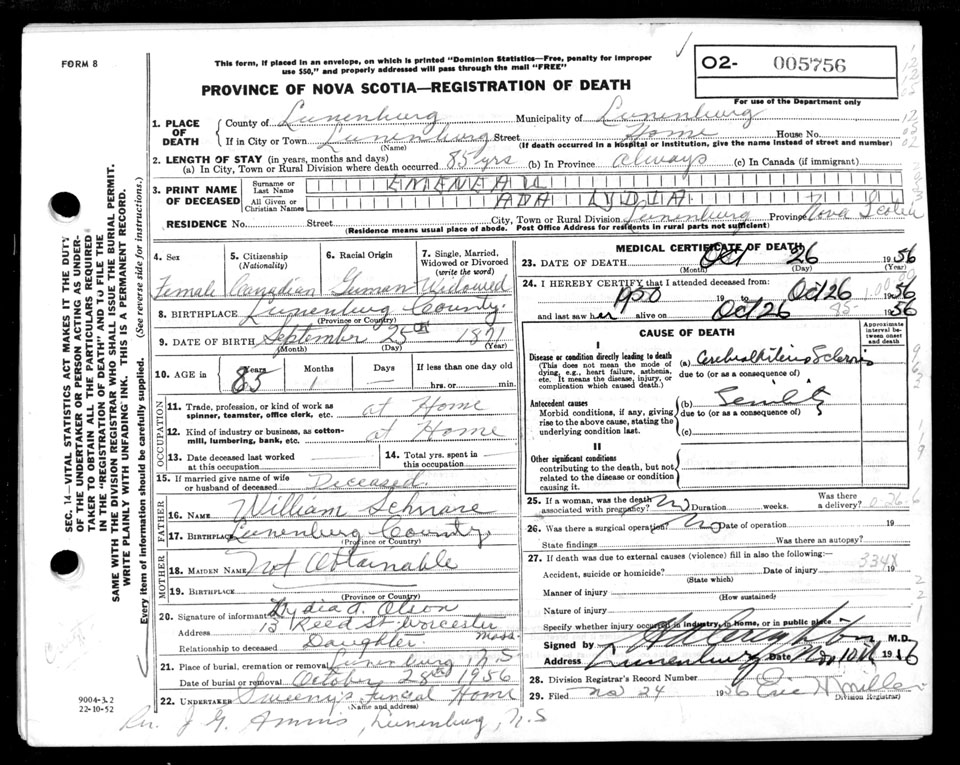 FORM 8
This form, if placed in an envelope, on which is printed "Dominion Statistics—Free, penalty for improper
use $50," and properly addressed will pass through the mail "FREE"
PROVINCE OF NOVA SCOTIA—REGISTRATION OF DEATH
02- 005756
For use of the Department only
1. PLACE OF DEATH
County of Lunenburg Municipality of Lunenburg
If in City or Town Lunenburg Street Home House No.
(Name) (If death occurred in a hospital or institution, give the name instead of street and number)
2. LENGTH OF STAY (in years, months and days)
(a) In City, Town or Rural Division where death occurred 85 yrs (b) In Province always (c) In Canada (if immigrant)
3. PRINT NAME OF DECEASED
Surname or Last Name EMENEAU
All Given or Christian Names ADA LYDIA
RESIDENCE No. Street City, Town or Rural Division Lunenburg Province Nova Scotia
(Residence means usual place of abode. Post Office Address for residents in rural parts not sufficient)
4. Sex Female
5. Citizenship (Nationality) Canadian
6. Racial Origin German
7. Single, Married, Widowed or Divorced (write the word) Widowed
8. BIRTHPLACE Lunenburg County
(Province or Country)
9. DATE OF BIRTH September 25th 1871
(Month) (Day) (Year)
10. AGE in Years 85 Months 1 Days — If less than one day old
hrs. or min.
OCCUPATION
11. Trade, profession, or kind of work as spinner, teamster, office clerk, etc. at Home
12. Kind of industry or business, as cotton-mill, lumbering, bank, etc. at Home
13. Date deceased last worked at this occupation —
14. Total yrs. spent in this occupation
15. If married give name of wife or husband of deceased Deceased.
FATHER
16. NAME William Schnare
17. BIRTHPLACE Lunenburg County
(Province or Country)
MOTHER
18. MAIDEN NAME Not Obtainable
19. BIRTHPLACE
(Province or Country)
20. Signature of informant Lydia A. Olson
Address 13 Reed St Worcester Mass.
Relationship to deceased Daughter.
21. Place of burial, cremation or removal Lunenburg N.S
Date of burial or removal October 28th 1956
22. UNDERTAKER Sweeny's Funeral Home
(Name and address)
Rev. J G. , Lunenburg, N.S
MEDICAL CERTIFICATE OF DEATH
23. DATE OF DEATH Oct 26 1956
(Month) (Day) (Year)
24. I HEREBY CERTIFY that I attended deceased from
1950 19 to Oct 26 1956
and last saw her alive on Oct 26 1956
CAUSE OF DEATH
Approximate interval between onset and death
I
Disease or condition directly leading to death
(This does not mean the mode of dying, e.g., heart failure, asthenia, etc. It means the disease, injury, or complication which caused death.)
(a) Cerebral Arterio Sclerosis
due to (or as a consequence of)
Antecedent causes
Morbid conditions, if any, giving rise to the above cause, stating the underlying condition last.
(b) Senility
due to (or as a consequence of)
(c)
II
Other significant conditions
contributing to the death, but not related to the disease or condition causing it.
25. If a woman, was the death associated with pregnancy? No Duration weeks. Was there a delivery?
26. Was there a surgical operation? No Date of operation 19
State findings Was there an autopsy?
27. If death was due to external causes (violence) fill in also the following:—
334X
Accident, suicide or homicide? Date of injury 19
(State which)
Manner of injury
(How sustained)
Nature of injury
Specify whether injury occurred in industry, in home, or in public place
Signed by M.D.
Address Lunenburg Date Nov 10th 1956
28. Division Registrar's Record Number
29. Filed Nov 24 1956
Division Registrar)
SEC. 14—VITAL STATISTICS ACT MAKES IT THE DUTY
OF THE UNDERTAKER OR PERSON ACTING AS UNDER-
TAKER TO OBTAIN ALL THE PARTICULARS REQUIRED
IN THE "REGISTRATION OF DEATH" AND TO FILE THE
SAME WITH THE DIVISION REGISTRAR WHO SHALL ISSUE THE BURIAL PERMIT.
WRITE PLAINLY WITH UNFADING INK. THIS IS A PERMANENT RECORD.
Every item of information should be carefully supplied. (See reverse side for instructions.)
9004-3.2
22-10-52